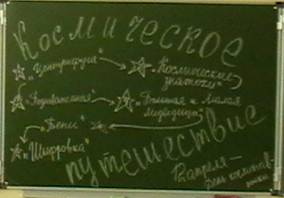 Космическое
"Центрифуга"
"Космические
знатоки"
"Большая и Малая
Медведица"
"Шифровка"
путешествие
12 апреля –
день космонав-
тики